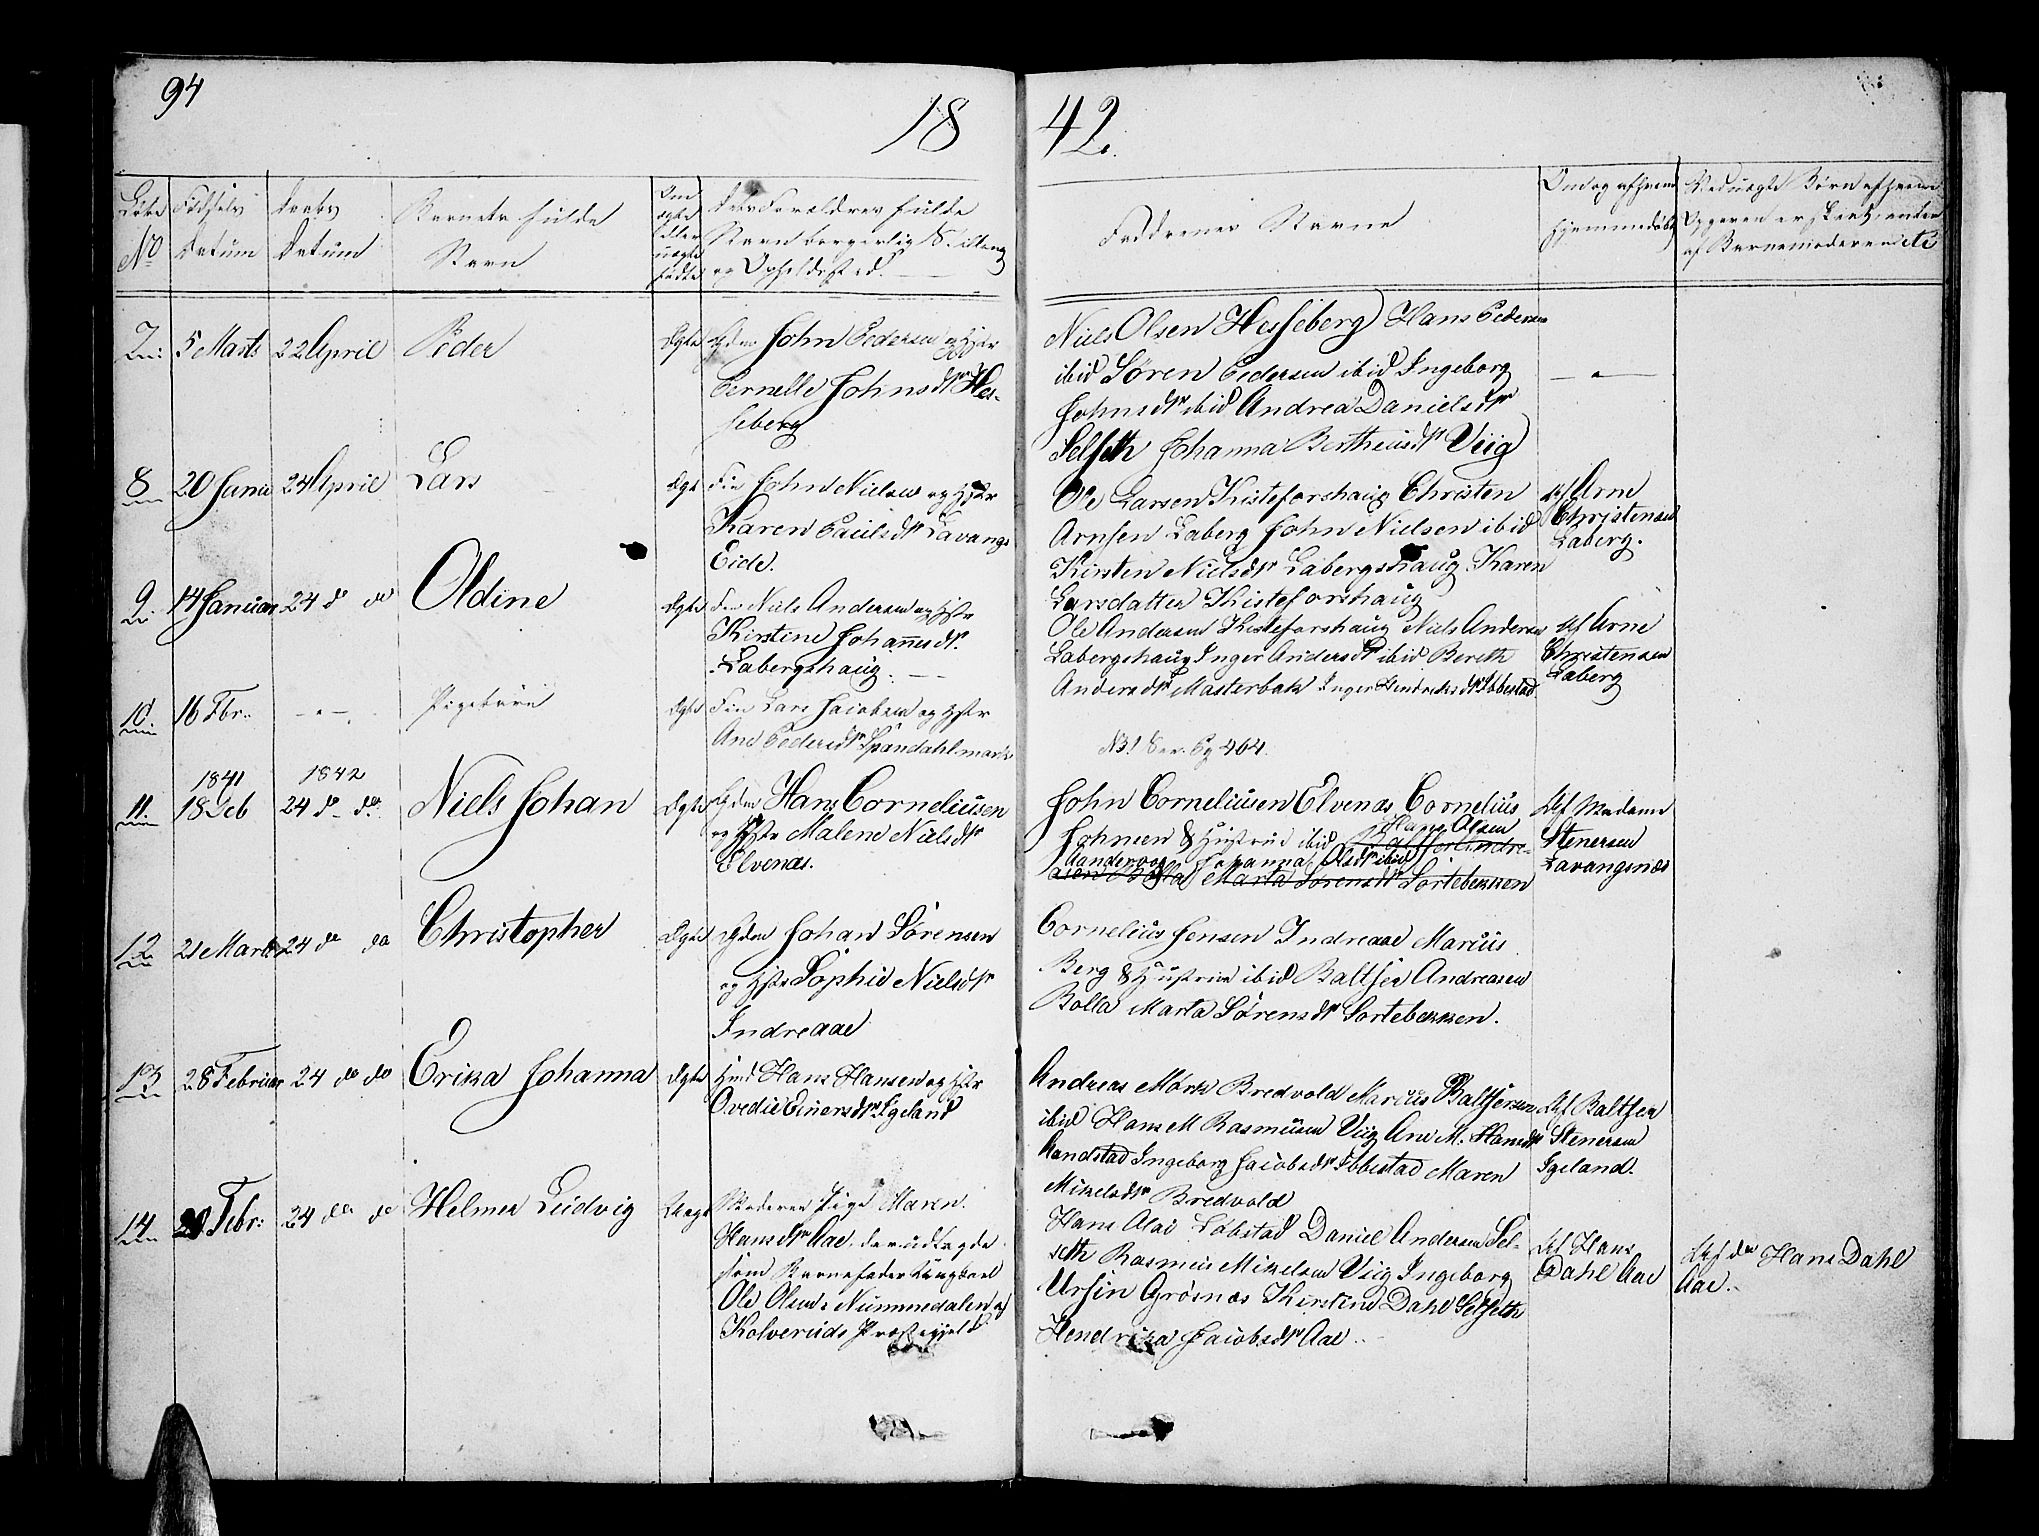 94
18 42.
Løbe No
Fødsels Datum
Daabs Datum
Barnets fulde Navn
Om ægte eller uægte født
dets Forældres fulde Navn borgerlig Stilling og Opholdssted.
Faddernes Navne
Om og af hvem hjemmedøbt
Ved uægte Børn af hvem Opgaven er skeet, enten af Barnemoderen etc
7.
5 Marts
22 April
Peder
Ægte
Gdm John Pedersen og Hstr
Pernelle Johnsdtr Hes-
seberg
Niels Olsen Hesseberg Hans Pedersen
ibid Søren Pedersen ibid Ingeborg
Johnsdtr ibid Andrea Danielsdtr
Selseth Johanna Bertheusdtr Viig
8
20 Janu
24 April
Lars
Ægte
Fin John Nielsen og Hstr
Karen Paulsdtr Lavangs
Eide.
Ole Larsen Kisteforshaug Christen
Arnsen Laberg John Nielsen ibid
Kirsten Nielsdtr Labergshaug Karen
Larsdatter Kisteforshaug
Af Arne
Christensen
Laberg.
9.
14 Januar
24 do do
Oldine
Ægte
Fin Niels Andersen og Hstr
Kirstine Johannesdtr.
Labergshaug.
Ole Andersen Kisteforshaug Niels Andersen
Labergshaug Inger Andersdtr ibid Bereth
Andersdtr Masterbak Inger Hendriksdtr Ibbestad
Af Arne
Christensen
Laberg
10.
16 Fbr.
Pigebørn
Ægte
Fin Lars Jacobsen og Hstr
Ane Pedersdtr Spandahlmarke
NB! See Pg 464.
11.
1841
18 Deb
1842
24 do do
Niels Johan
Ægte
Gdm Hans Corneliusen
og Hstr Malene Nielsdtr
Elvenæs.
John Corneliusen Elvenæs Cornelius
Johnsen & Hustrue ibid Baltser Andre-
Hans Olsen
Aandervaag Johanna Olsdtr ibid
asen Bolla Marta Sørensdtr Sortebekken
Af Madame
Stenersen
Lavangsnæs
12
21 Marts
24 do do
Christopher
Ægte
Gdm Johan Sørensen
og Hstr Sophie Nielsdtr
Indreaae
Cornelius Jensen Indreaae Marcus
Berg & Hustrue ibid Baltser Andreasen
Bolla Marta Sørensdtr Sortebekken.
13
28 Februar
24 do do
Erika Johanna
Ægte
Hmd Hans Hansen og Hstr
Ovedie Einersdtr Igeland
Andreas Mørk Bredvold Marcus Baltsersen
ibid Hans M Rasmusen Viig Ane M. Hansdtr
Aandstad Ingeborg Jacobsdtr Ibbestad Maren
Mikelsdtr Bredvold
Af Baltser
Stenersen
Igeland.
14
28 Febr:
24 do do
Helmer Ludvig
Uægte
Moderen Pige Maren
Hansdtr Aae, der udlagde
som Barnefader Ungkarl
Ole Olsen Nummedalen af
Kolveruds Præstegjeld
Hans Olai Løbstad Daniel Andersen Sel-
seth Rasmus Mikelsen Viig Ingeborg
Ursin Grøsnæs Kirstine Dahl Selseth
Hendrika Jacobsdtr Aae.
Af Hans
Dahl Aae
Af do Hans Dahl
Aae.